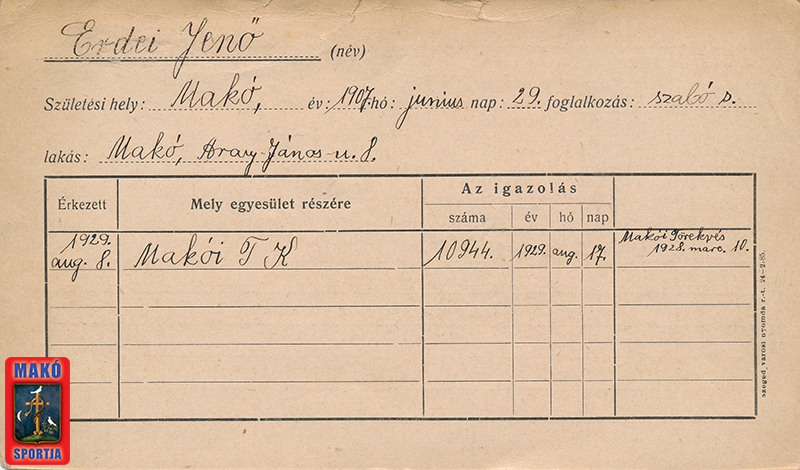 Erdei Jenő (név)
Születési hely: Makó, év: 1907. hó: junius nap: 29. foglalkozás: szabó s.
lakás: Makó, Arany János u. 8.
Érkezett Mely egyesület részére Az igazolás
száma év hó nap
1929. aug. 8. Makói T K 10944. 1929. aug. 17. Makói Törekvés 1928. marc. 10.
szeged városi nyomda r.-t. 24–2.85.
MAKÓ
SPORTJA